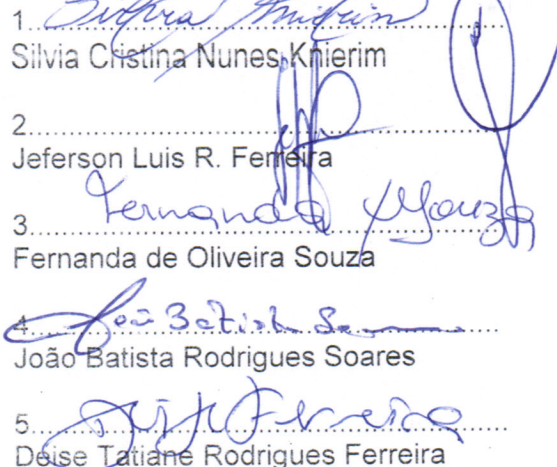 1.Silvia Knierim
Silvia Cristina Nunes Knierim
2.
Jeferson Luis R. Ferreira
3.Fernanda Souza
Fernanda de Oliveira Souza
4.João Batista
João Batista Rodrigues Soares
5.Ferreira
Deise Tatiane Rodrigues Ferreira